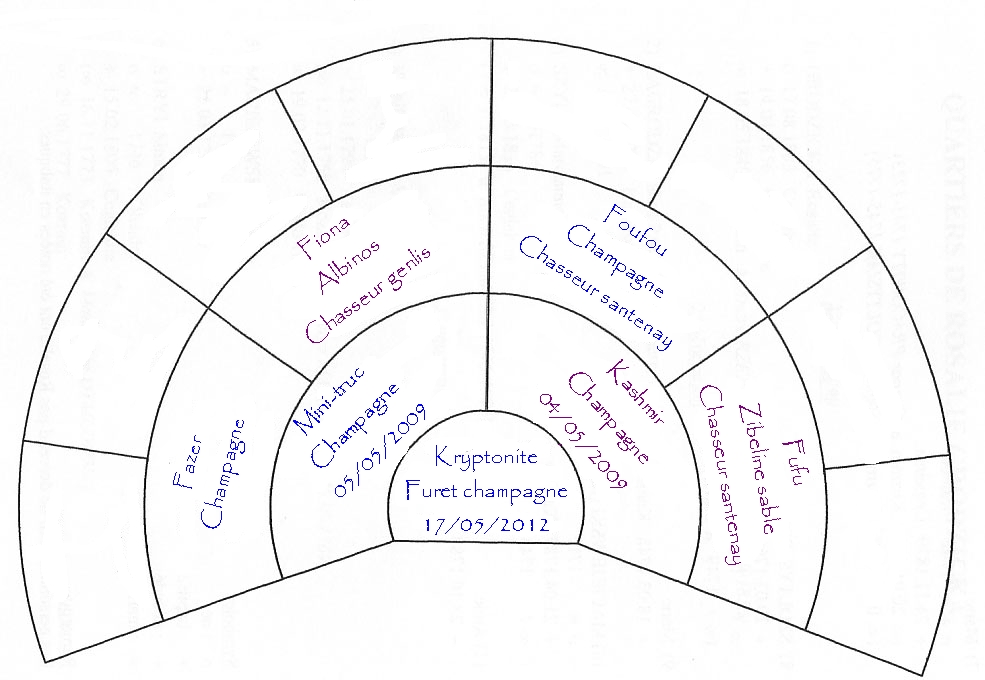 Fiona
Albinos
Chasseur genlis
Foufou
Champagne
Chasseur santenay
Fazer
Champagne
Mini-truc
Champagne
05/05/2009
Kashmir
Champagne
04/05/2009
Fufu
Zibeline sable
Chasseur santenay
Kryptonite
Furet champagne
17/05/2012